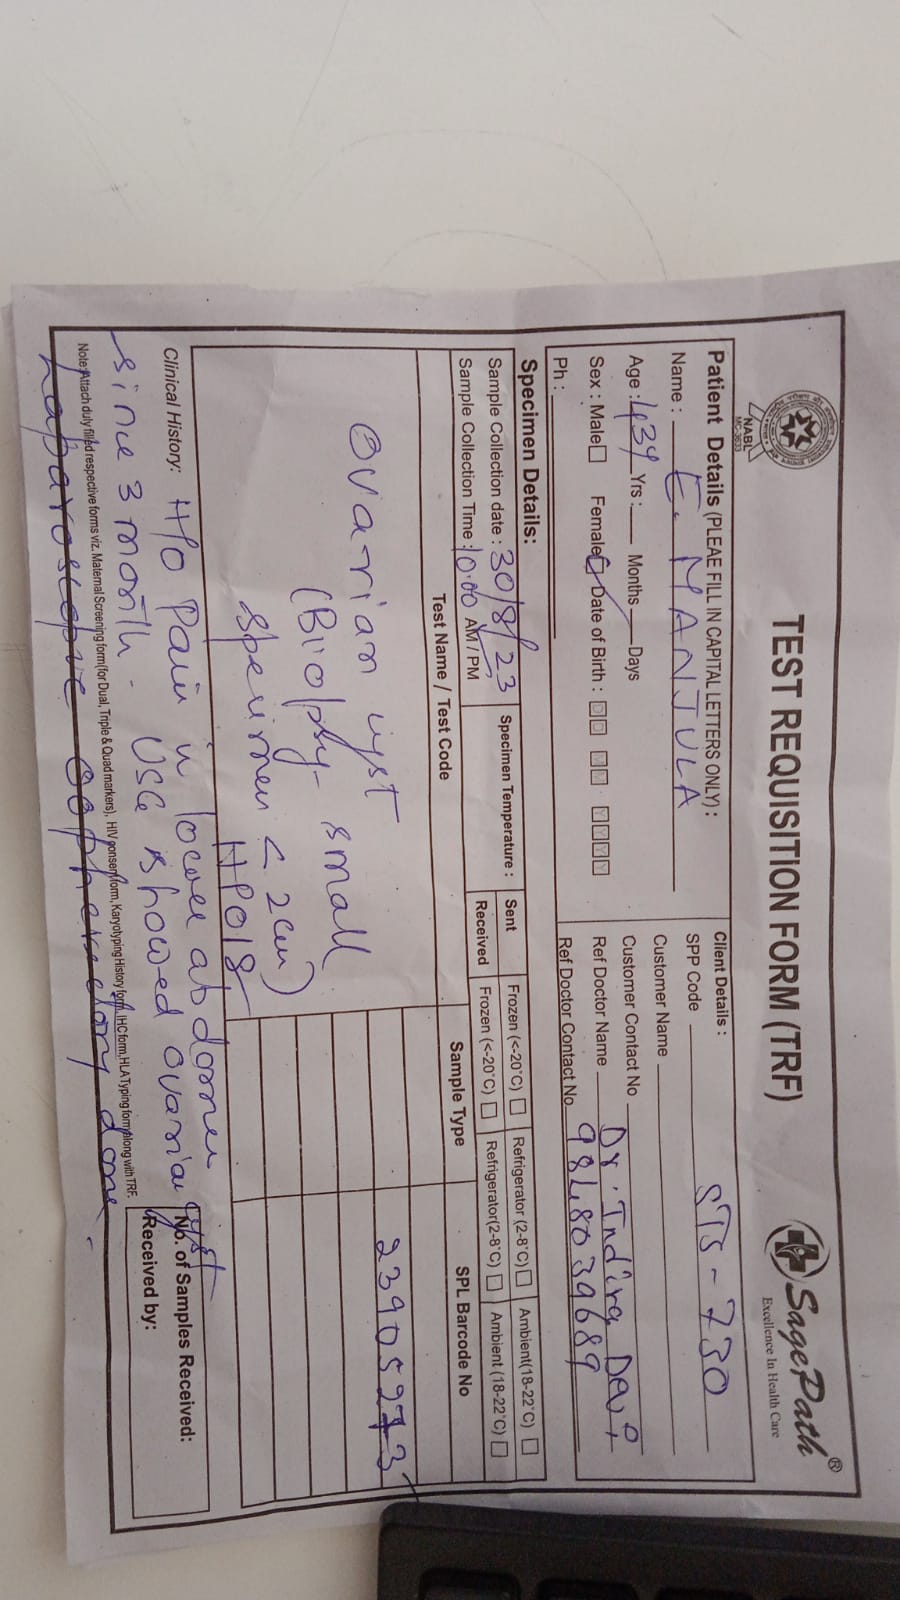 NABL
MC-3633
TEST REQUISITION FORM (TRF)
SagePath®
Excellence In Health Care
Patient Details (PLEAE FILL IN CAPITAL LETTERS ONLY) :
Name : E. MANJULA
Age : 43y Yrs : Months Days
Sex : Male Female Date of Birth : D D M M Y Y Y Y
Ph :
Client Details :
SPP Code STS-730
Customer Name
Customer Contact No
Ref Doctor Name Dr. Indira Devi
Ref Doctor Contact No 9848039689
Specimen Details:
Sample Collection date : 30/8/23
Sample Collection Time : 10:00 AM / PM
Specimen Temperature :
Sent Frozen (<-20°C) Refrigerator (2-8°C) Ambient(18-22°C)
Received Frozen (<-20°C) Refrigerator(2-8°C) Ambient (18-22°C)
Test Name / Test Code Sample Type SPL Barcode No
23905273
Ovarian cyst
(Biopsy- small
specimen < 2cm)
HP018
Clinical History: H/o Pain in lower abdomen
since 3 month. USG showed ovarian cyst
No. of Samples Received:
Received by:
Note: Attach duly filled respective forms viz. Maternal Screening form(for Dual, Triple & Quad markers), HIV consent form, Karyotyping History form, IHC form, HLA Typing form along with TRF.
done.